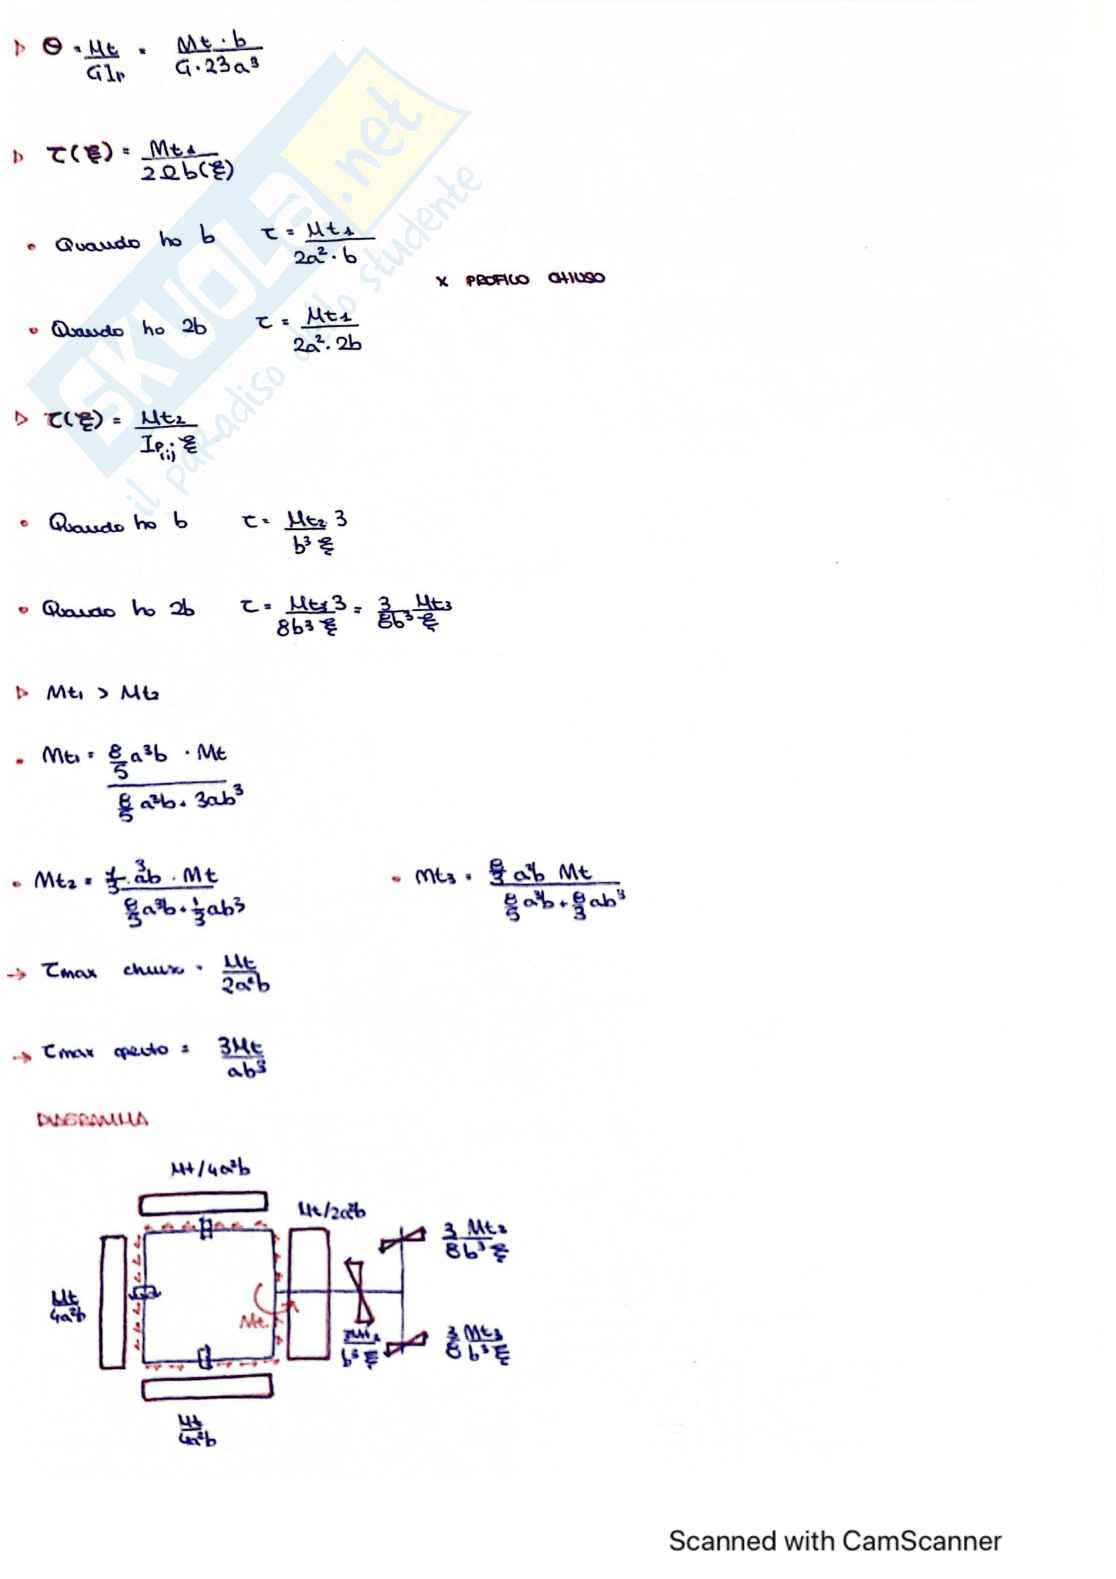 ▷ Θ = Mt/GIp = Mt · b/G · 23a³
▷ τ(ξ) = Mt1/2Ωb(ξ)
• Quando ho b τ = Mt1/2a² · b
x PROFILO CHIUSO
• Quando ho 2b τ = Mt1/2a² · 2b
▷ τ(ξ) = Mt2/Ip(i) · ξ
• Quando ho b τ = Mt2 3/b³ ξ
• Quando ho 2b τ = Mt3 3/8b³ ξ = 3/8b³ Mt3/ξ
▷ Mt1 > Mt2
• Mt1 = 8/5 a³b · Mt / 8/5 a³b + 3ab³
• Mt2 = 1/3 · ab³ · Mt / 8/5 a³b + 1/3 ab³
• Mt3 = 8/3 a³b Mt / 8/5 a³b + 8/3 ab³
→ τmax chiuso = Mt/2a²b
→ τmax aperto = 3Mt/ab³
DIAGRAMMA
Mt/4a²b
Mt/2a²b
3 Mt3/8b³ ξ
Mt/4a²b
Mt
3Mt2/b³ ξ
3/8 Mt3/b³ ξ
Mt/4a²b
SKUOLA.net
il paradiso dello studente
Scanned with CamScanner